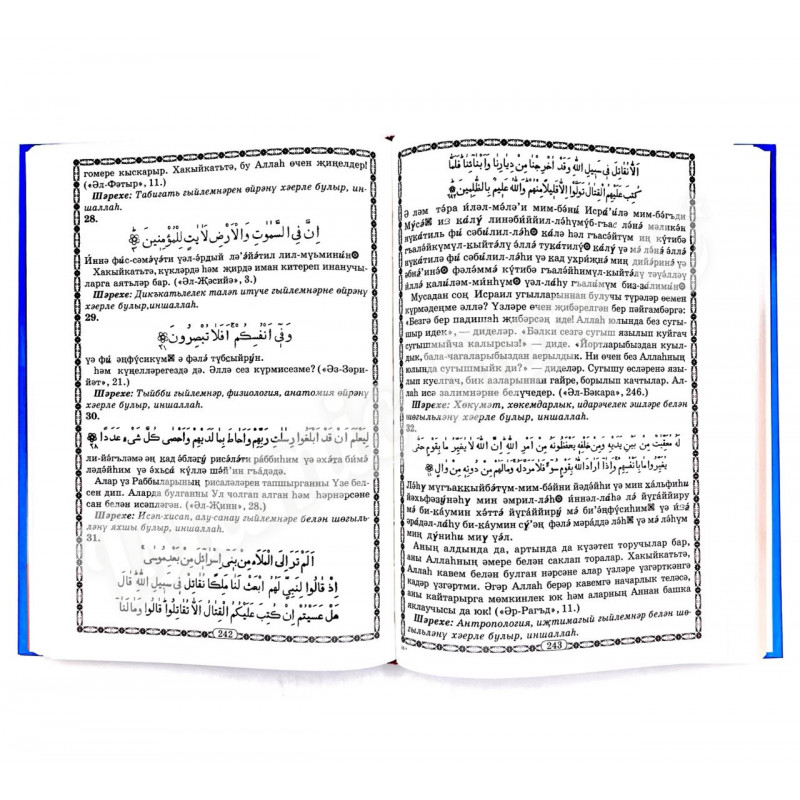 гомере кыскарыр. Хакыйкатьтә, бу Аллаһ өчен җиңелдер!
(«Әл-Фәтыр», 11.)
Шәрехе: Табигать гыйлемнәрен өйрәнү хәерле булыр, ин-
шаллаһ.
28.
اِنَّ فِي السَّمٰوٰتِ وَالْاَرْضِ لَاٰيٰتٍ لِلْمُؤْمِنِينَ
Иннә фи́с-сәмә́үә́ти үәл-ә́рдый лә'ә́йә́тил лил-мүьмини́н
Хакыйкатьтә, күкләрдә һәм җирдә иман китереп инанучы-
ларга аятьләр бар. («Әл-Җәсийә», 3.)
Шәрехе: Дикъкатьлелек таләп итүче гыйлемнәрне өйрәнү
хәерле булыр,иншаллаһ.
29.
وَفِي اَنْفُسِكُمْ اَفَلَا تُبْصِرُونَ
үә фи́ әңфүсикүм ә фәлә́ түбсыйру́н.
һәм күңелләрегездә дә. Әллә сез күрмисезме? («Әз-Зәри-
йәт», 21.)
Шәрехе: Тыйбби гыйлемнәр, физиология, анатомия өйрәнү
хәерле булыр, иншаллаһ.
30.
لِيَعْلَمَ اَنْ قَدْ اَبْلَغُوا رِسَالَاتِ رَبِّهِمْ وَاَحَاطَ بِمَا لَدَيْهِمْ وَاَحْصٰى كُلَّ شَيْءٍ عَدَدًا
ли-йәгъләмә әң кад әбләгу́ рисә́лә́ти рәббиһим үә әхә́та би́мә́
ләдәйһим үә әхьса́ күллә шәй'иң гъәдәдә.
Алар үз Раббыларының рисаләләрен тапшырганны Үзе бел-
сен дип. Аларда булганны Ул чолгап алган һәм һәрнәрсәне
сан белән исәпләгән. («Әл-Җинн», 28.)
Шәрехе: Исәп-хисап, алу-санау гыйлемнәре белән шөгыль-
ләнү яхшы булыр, иншаллаһ.
31.
اَلَمْ تَرَ اِلَى الْمَلَاِ مِنْ بَنِي اِسْرَائِيلَ مِنْ بَعْدِ مُوسٰى
اِذْ قَالُوا لِنَبِيٍّ لَهُمُ ابْعَثْ لَنَا مَلِكًا نُقَاتِلْ فِي سَبِيلِ اللّٰهِ قَالَ
هَلْ عَسَيْتُمْ اِنْ كُتِبَ عَلَيْكُمُ الْقِتَالُ اَلَّا تُقَاتِلُوا قَالُوا وَمَا لَنَا
242
اَلَّا نُقَاتِلَ فِي سَبِيلِ اللّٰهِ وَقَدْ اُخْرِجْنَا مِنْ دِيَارِنَا وَاَبْنَائِنَا فَلَمَّا
كُتِبَ عَلَيْهِمُ الْقِتَالُ تَوَلَّوْا اِلَّا قَلِيلًا مِنْهُمْ وَاللّٰهُ عَلِيمٌ بِالظَّالِمِينَ
Ә ләм тәра йләл-мәлә'и мим-бәни́ Исра́'и́лә мим-бәгъди
Му́са́ из ка́лу́ линәбиййил-ләһүмүб-гъас ләнә мәликән
нүка́тиль фи́ сәби́лил-лә́һ ка́лә һәл гъәсәйтүм иң күтибә
гъәләйкүмүл-кыйтә́лү әллә́ тука́тилү́ ка́лу́ үә мә́ ләнә́ әллә́
нүка́тилә фи́ сәби́лил-лә́һи үә кад ухриҗнә́ миң дийә́ринә́ үә
әбнә́'инә́ фәләммә́ күтибә гъәләйһимүл-кыйтә́лү тәүәлләү
иллә́ кали́ләм-минһүм үәл-лә́һү гъәли́мүм биз-за́лими́н
Мусадан соң Израил угылларыннан булучы түрәләр өемен
күрмәдеңме әллә? Үзләре өчен җибәрелгән бер пәйгамбәргә:
«Безгә бер падишаһ җибәрсәң иде! Аллаһ юлында без сугы-
шыр идек», — диделәр. «Бәлки сезгә сугыш язылып куйгач
сугышмыйча калырсыз!» — диде. «Йортларыбыздан куыл-
дык, бала-чагаларыбыздан аерылдык. Ни өчен без Аллаһның
юлында сугышмыйк ди?» — диделәр. Сугышу өсләренә язы-
лып куелгач, бик азларыннан гайре, борылып качтылар. Ал-
лаһ исә залимнәрне белүчедер. («Әл-Бәкара», 246.)
Шәрехе: Хөкүмәт, хөкемдарлык, идарәчелек эшләре белән
шөгыльләнү хәерле булыр, иншаллаһ.
32.
لَهُ مُعَقِّبَاتٌ مِنْ بَيْنِ يَدَيْهِ وَمِنْ خَلْفِهِ يَحْفَظُونَهُ مِنْ اَمْرِ اللّٰهِ اِنَّ اللّٰهَ لَا يُغَيِّرُ مَا بِقَوْمٍ حَتّٰى
يُغَيِّرُوا مَا بِاَنْفُسِهِمْ وَاِذَا اَرَادَ اللّٰهُ بِقَوْمٍ سُوءًا فَلَا مَرَدَّ لَهُ وَمَا لَهُمْ مِنْ دُونِهِ مِنْ وَالٍ
Ләһу́ мүгъаккыйбә́түм-мим-бәйни йәдәйһи үә мин хальфиһи
йәхьфәзу́нәһү мин әмрил-лә́һ иннәл-лаһә лә́ йүгаййиру
мә́ би-каумин хәттә́ йүгаййиру́ мә́ би'әңфүсиһим үә изә́
әра́дәл-лаһү би-каумин су́'әң фәлә́ мәрәддә ләһ үә мә́ ләһүм
миң ду́ниһи миү үә́л.
Аның алдында да, артында да күзәтеп торучылар бар,
аны Аллаһның әмере белән саклап торалар. Хакыйкатьтә,
Аллаһ кавем белән булган нәрсәне алар үзләре үзгәрткәнгә
кадәр үзгәртми. Әгәр Аллаһ берәр кавемгә начарлык теләсә,
аны кайтарырга мөмкинлек юк һәм аларның Аннан башка
яклаучысы да юк! («Әр-Рагъд», 11.)
Шәрехе: Антропология, иҗтимагый гыйлемнәр белән шө-
гыльләнү хәерле булыр, иншаллаһ.
243